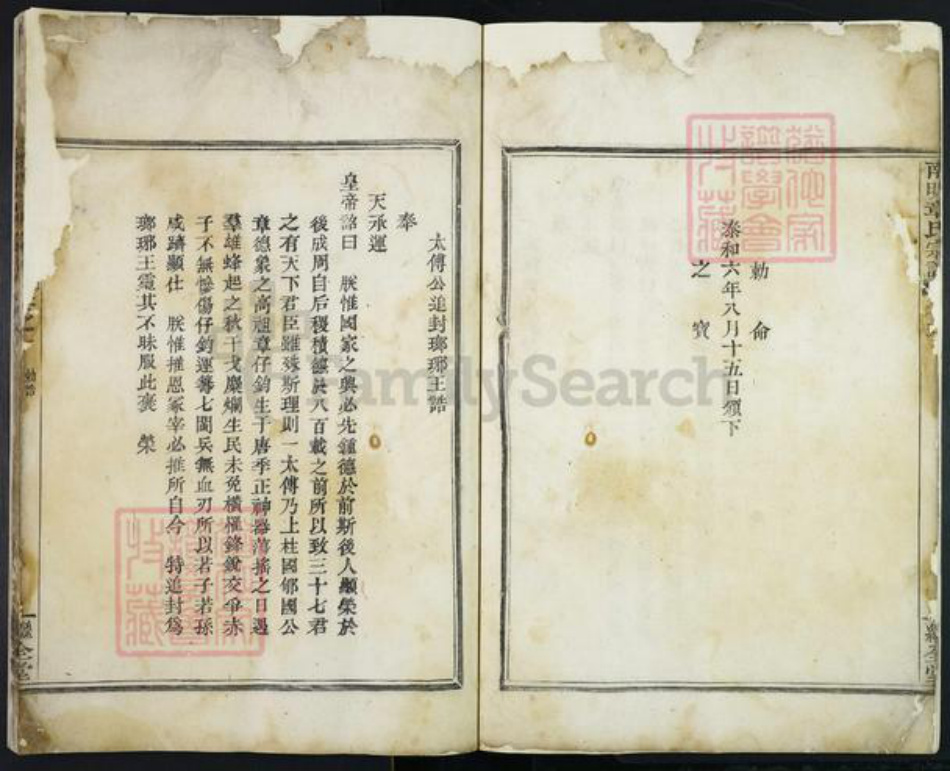 南明章氏宗譜
勅命
泰和六年八月十五日頒下
之寶
繼全堂
太傅公追封瑯琊王誥
奉
天承運
皇帝詔曰 朕惟國家之興必先鍾德於前斯後人顯榮於
後成周自后稷積德於八百載之前所以致三十七君
之有天下君臣雖殊斯理則一太傅乃上柱國郇國公
章德象之高祖章仔鈞生于唐季正神器蕩搖之日遇
羣雄蜂起之秋干戈麋爛生民未免橫罹鋒鏑交爭赤
子不無慘傷仔鈞運籌七閩兵無血刃所以若子若孫
咸躋顯仕 朕惟推恩冢宰必推所自今 特追封為
瑯琊王靈其不昧服此褒 榮
勅誥
一
繼全堂
FamilySearch